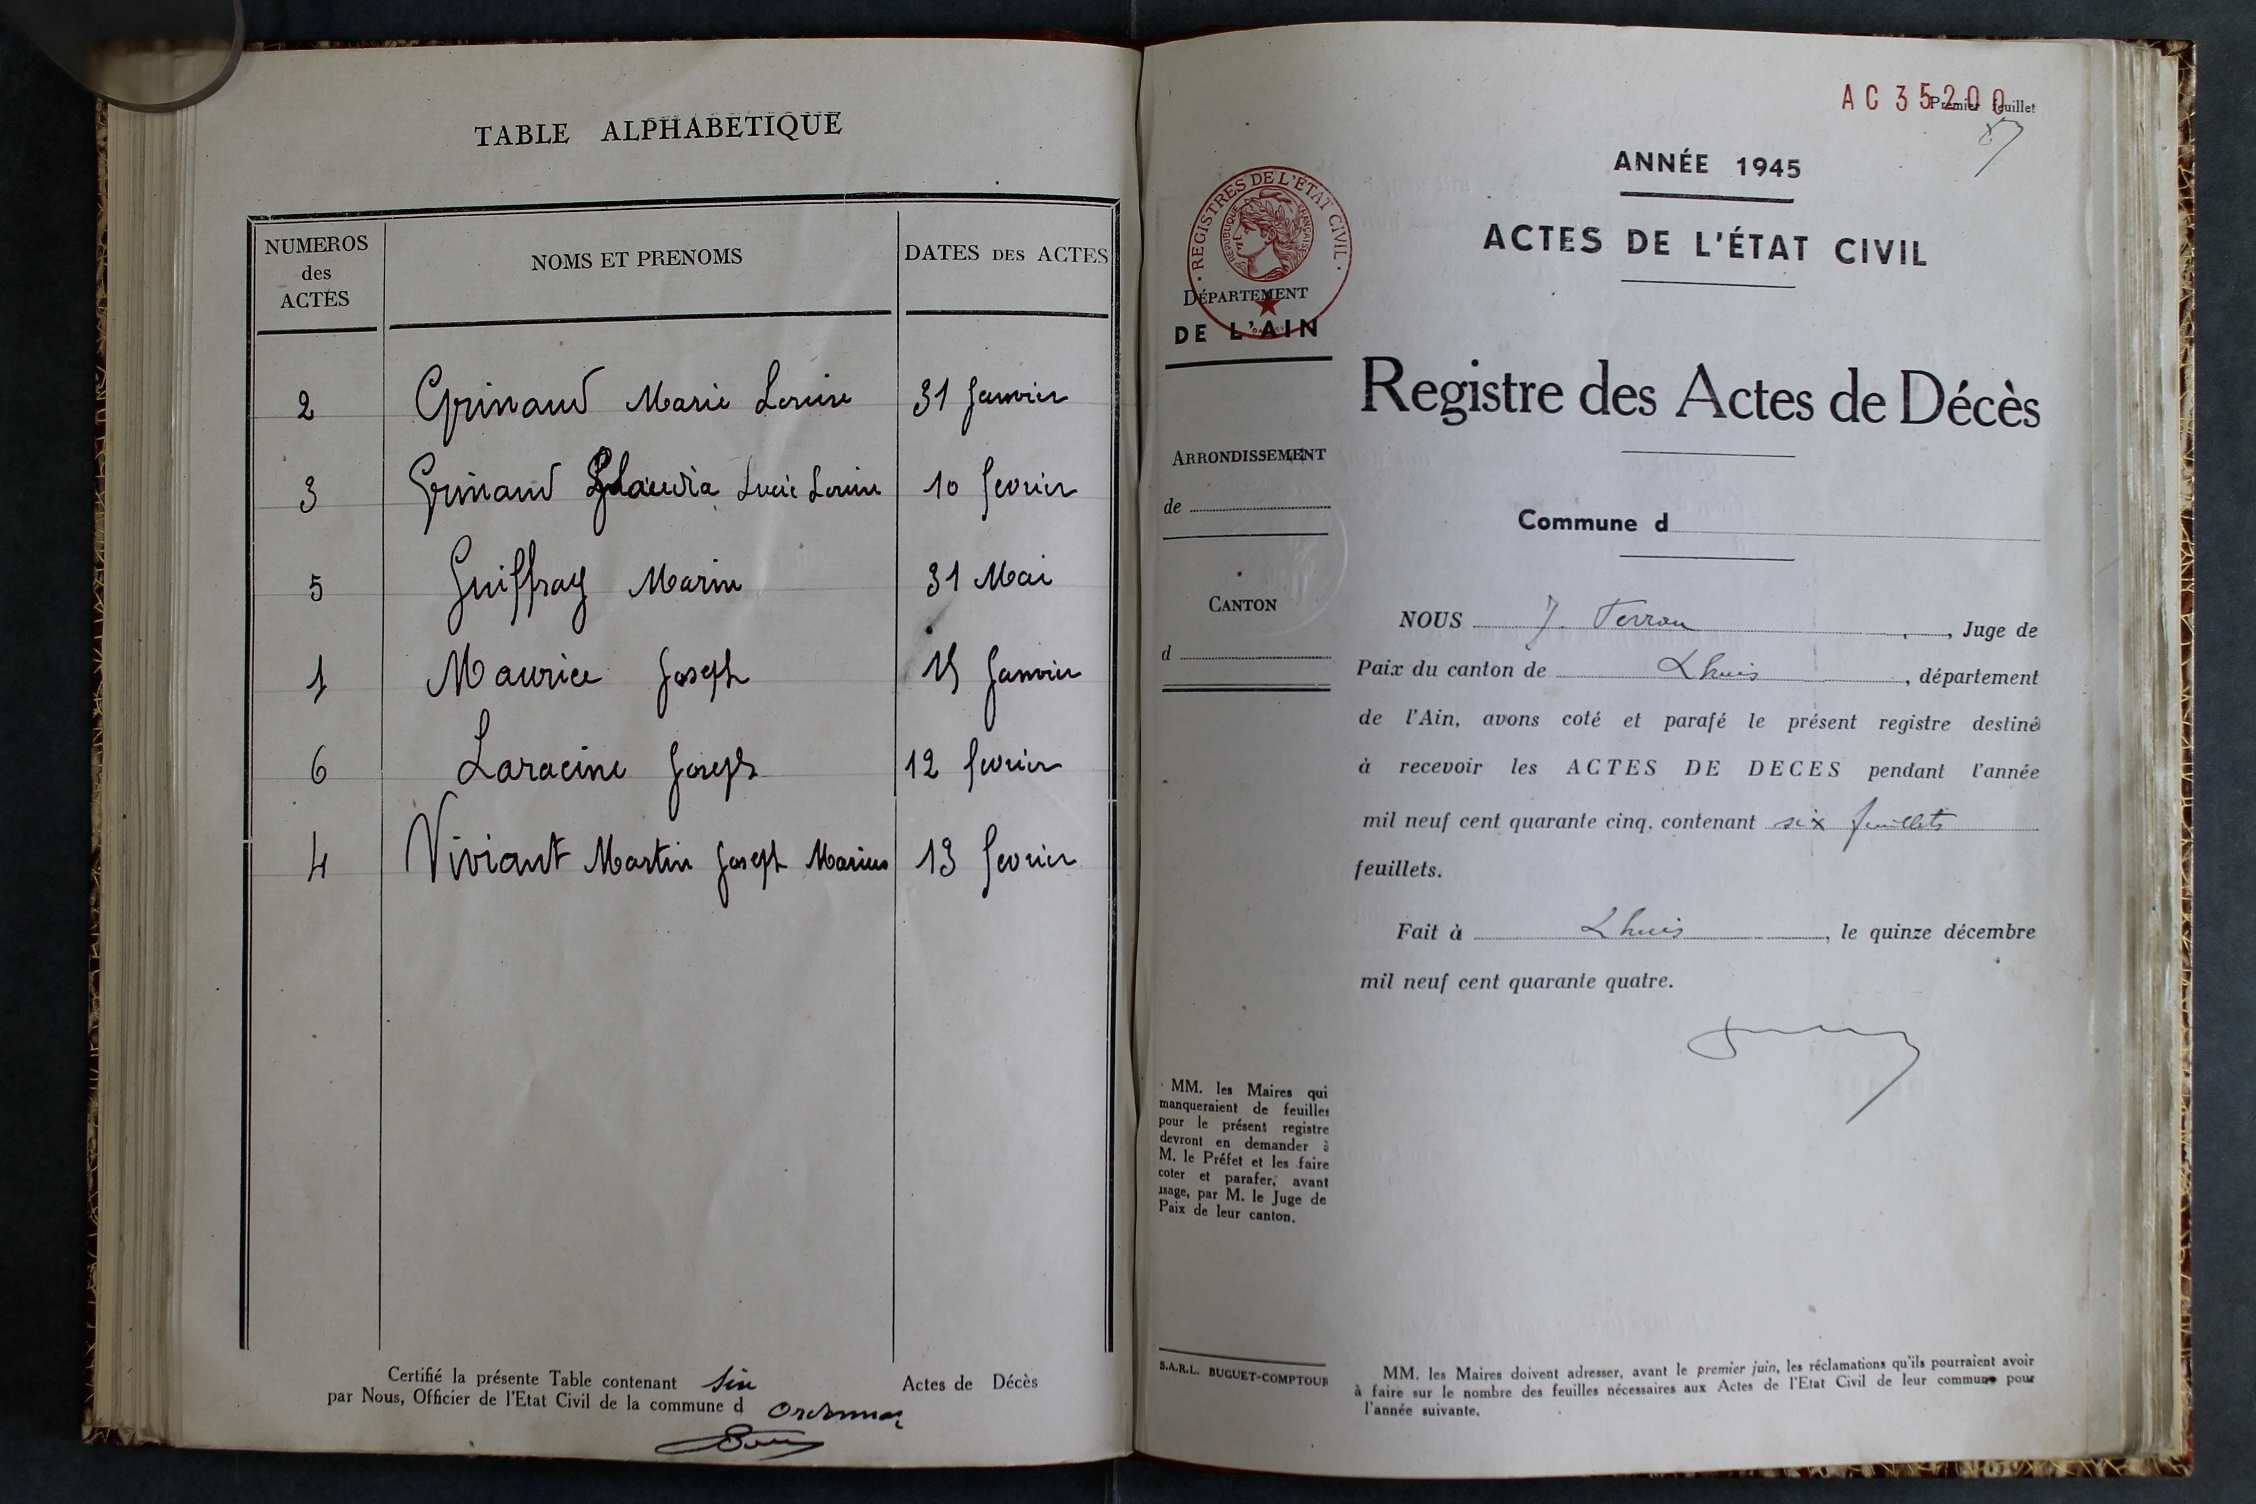 TABLE ALPHABETIQUE
NUMEROS des ACTES
NOMS ET PRENOMS
DATES DES ACTES
2 Grinand Marie Louise 31 Janvier
3 Grinand Claudia Lucie Louise 10 fevrier
5 Guiffray Marin 31 Mai
1 Maurice Joseph 15 Janvier
6 Laracine Joseph 12 fevrier
4 Viviant Martin Joseph Marius 13 fevrier
Certifié la présente Table contenant six Actes de Décès
par Nous, Officier de l'Etat Civil de la commune d Ordonnaz
AC 35200
Premier feuillet
ANNÉE 1945
ACTES DE L'ÉTAT CIVIL
REGISTRES DE L'ÉTAT CIVIL
RÉPUBLIQUE FRANÇAISE
DÉPARTEMENT
DE L'AIN
Registre des Actes de Décès
ARRONDISSEMENT
de
Commune d
CANTON
d
NOUS J. Ferran, Juge de
Paix du canton de Lhuis, département
de l'Ain, avons coté et parafé le présent registre destiné
à recevoir les ACTES DE DECES pendant l'année
mil neuf cent quarante cinq, contenant six feuillets
feuillets.
Fait à Lhuis, le quinze décembre
mil neuf cent quarante quatre.
MM. les Maires qui
manqueraient de feuilles
pour le présent registre
devront en demander à
M. le Préfet et les faire
coter et parafer, avant
usage, par M. le Juge de
Paix de leur canton.
S.A.R.L. BUGUET-COMPTOUR
MM. les Maires doivent adresser, avant le premier juin, les réclamations qu'ils pourraient avoir
à faire sur le nombre des feuilles nécessaires aux Actes de l'Etat Civil de leur commune pour
l'année suivante.